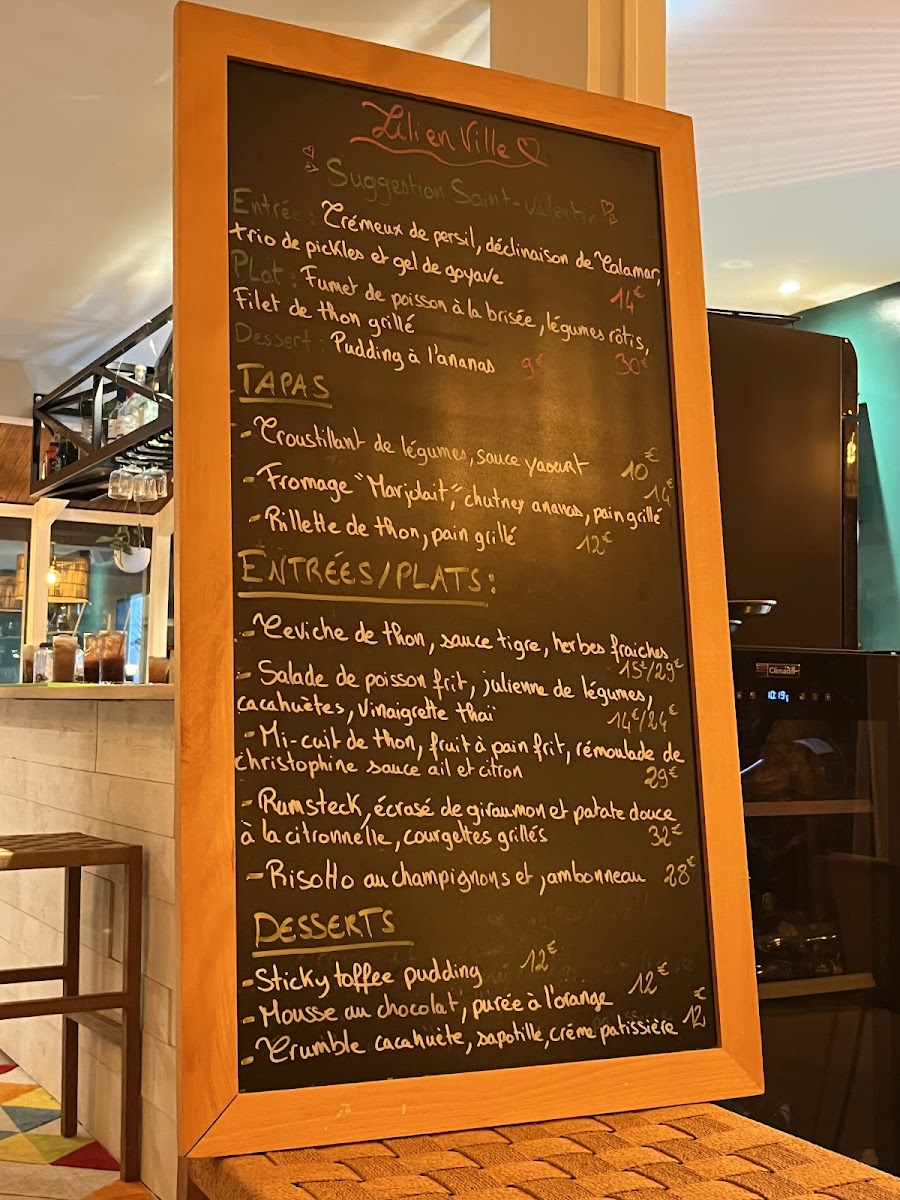 Lili en Ville
Suggestion Saint-Valentin
Entrée : Crémeux de persil, déclinaison de Calamar,
trio de pickles et gel de goyave 14€
Plat : Fumet de poisson à la brisée, légumes rôtis,
Filet de thon grillé 30€
Dessert : Pudding à l'ananas 9€
TAPAS
- Croustillant de légumes, sauce yaourt 10€
- Fromage "Marjolait", chutney ananas, pain grillé 14€
- Rillette de thon, pain grillé 12€
ENTRÉES/PLATS :
- Ceviche de thon, sauce tigre, herbes fraiches
15€/29€
- Salade de poisson frit, julienne de légumes,
cacahuètes, vinaigrette thaï 14€/24€
- Mi-cuit de thon, fruit à pain frit, rémoulade de
christophine sauce ail et citron 29€
- Rumsteck, écrasé de giraumon et patate douce
à la citronnelle, courgettes grillés 32€
- Risotto au champignons et jambonneau 28€
DESSERTS
- Sticky toffee pudding 12€
- Mousse au chocolat, purée à l'orange 12€
- Crumble cacahuète, sapotille, crème patissière 12€
Climadiff
10:19